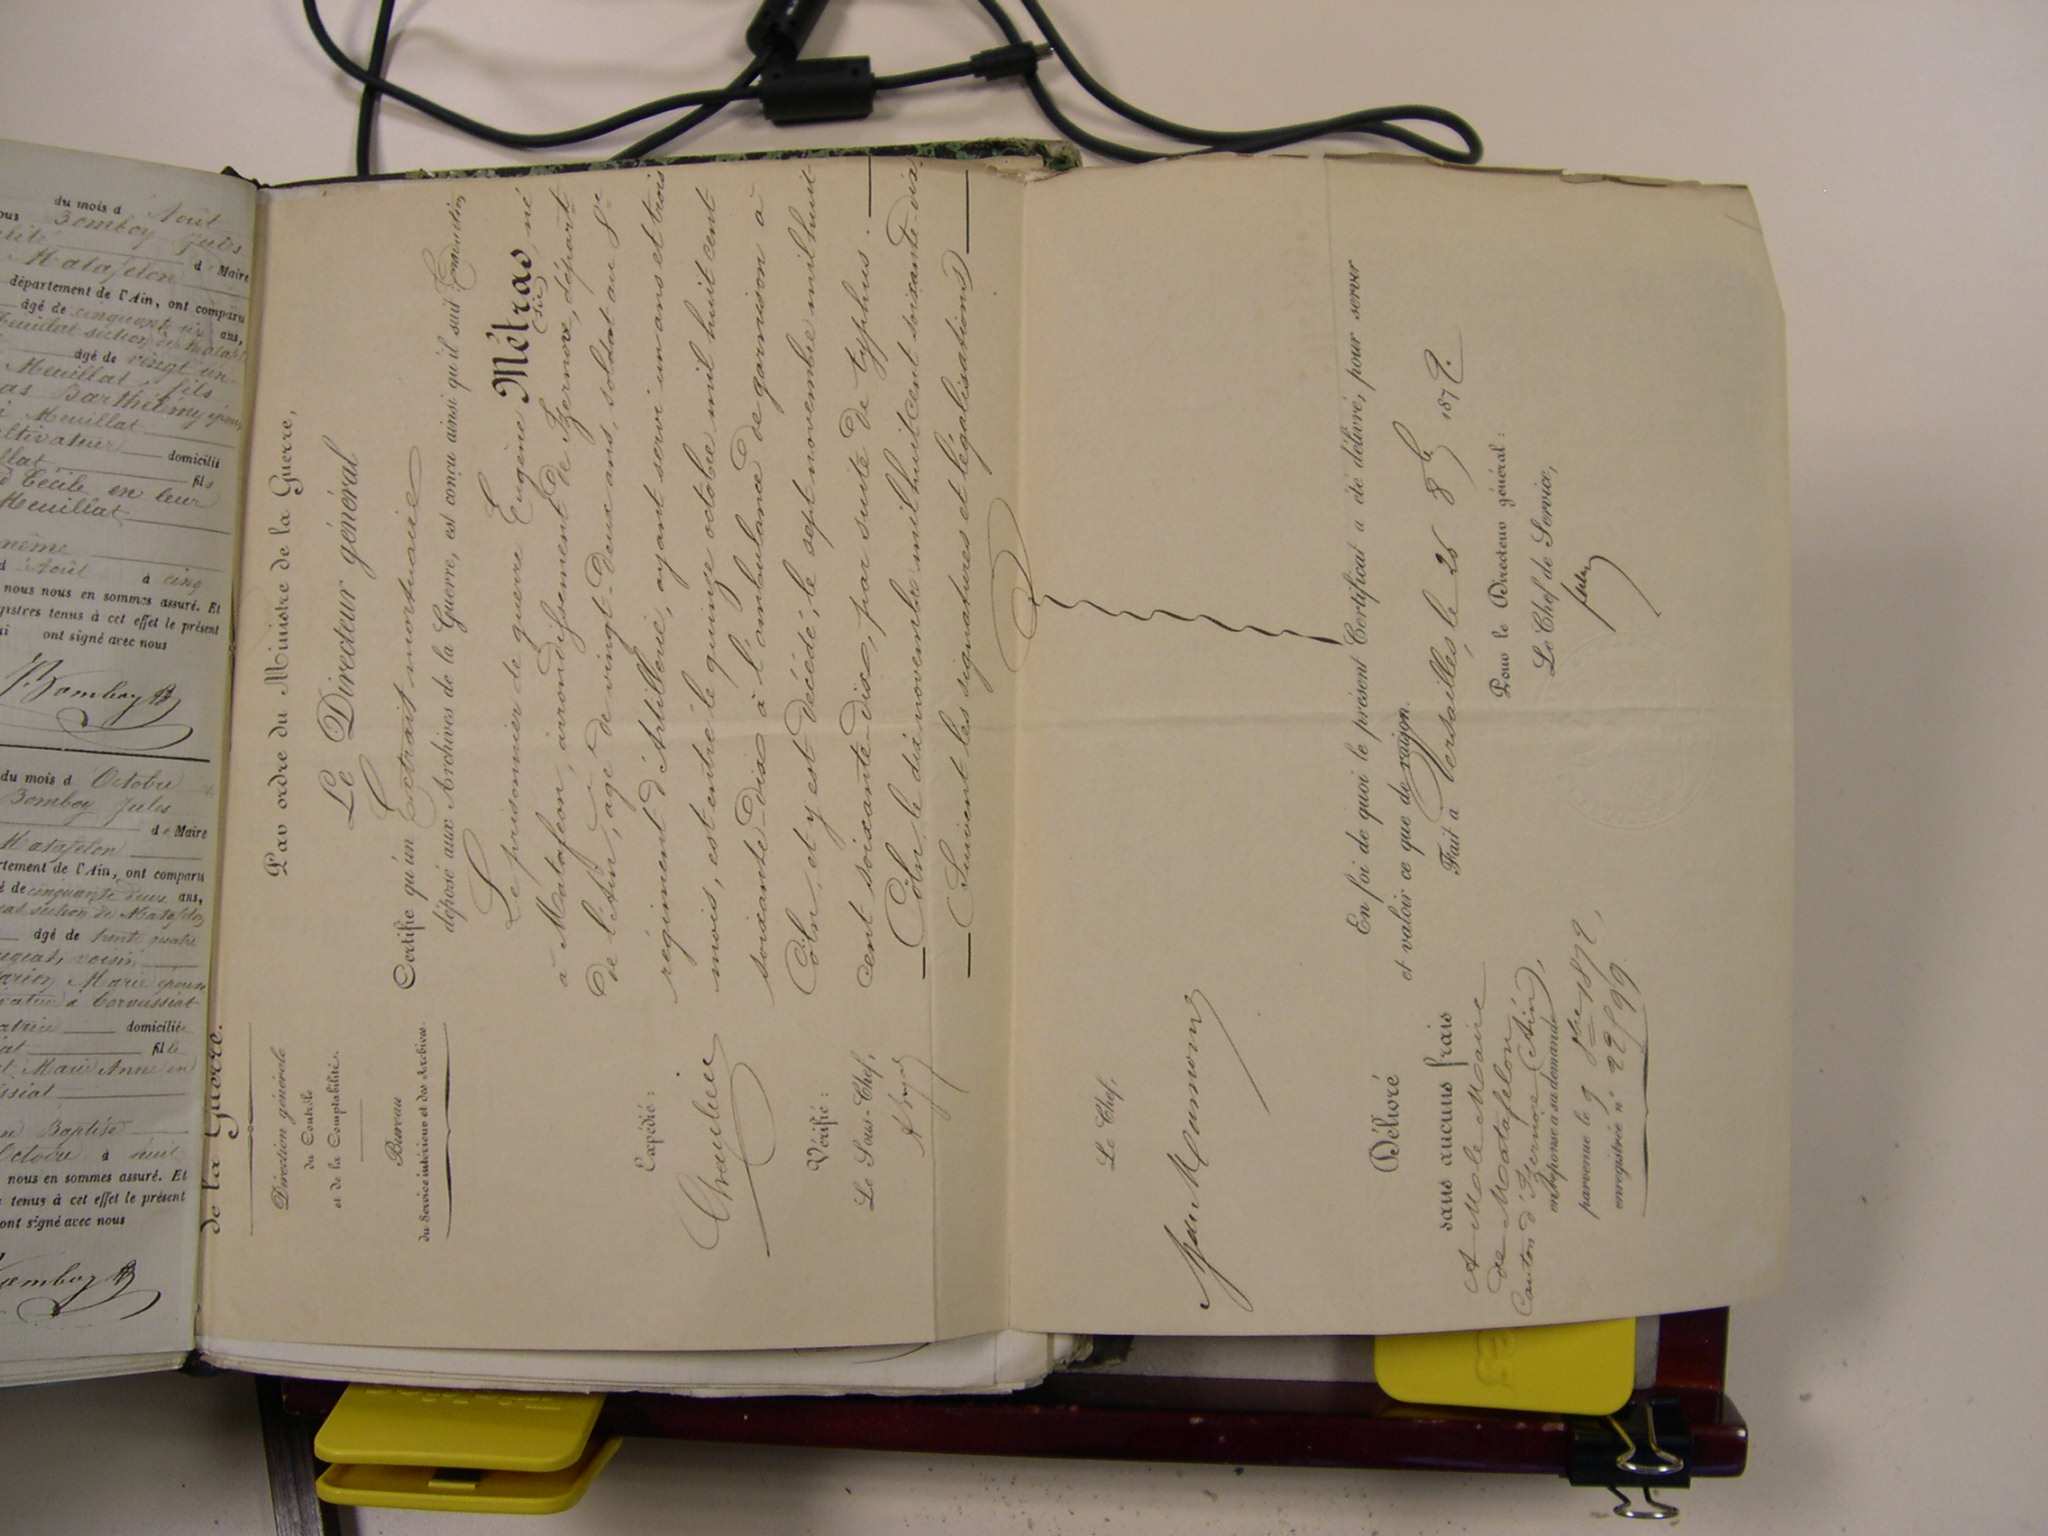 de la Guerre.
Direction générale
du Contrôle
et de la Comptabilité.
Bureau
du Service intérieur et des Archives.
Par ordre du Ministre de la Guerre,
Le Directeur général
Certifie qu'un Extrait mortuaire
déposé aux Archives de la Guerre, est conçu ainsi qu'il suit: Traduction
Le prisonnier de guerre Eugène Métras né
(sic)
à Matafeon, arrondissement de Izernox, départ.
de l'Ain, âgé de vingt-deux ans, soldat au 8e
régiment d'Artillerie, ayant servi un ans et trois
mois, est entré le quinze octobre mil huit cent
soixante-dix à l'ambulance de garnison à
Cöln, et y est décédé, le sept novembre mil huit
cent soixante-dix, par suite de typhus.
Cöln le dix novembre mil huit cent soixante-dix
(Suivent les signatures et légalisations)
Expédié:
Vérifié:
Le Sous-Chef,
Le Chef,
En foi de quoi le présent Certificat a été délivré, pour servir
et valoir ce que de raison.
Fait à Versailles le 26 8b 1872.
Pour le Directeur général:
Le Chef de Service,
Délivré
sans aucuns frais
A M. le Maire
de Matafelon,
Canton d'Izernore (Ain),
en réponse à sa demande
parvenue le 9 1872,
enregistrée n°
du mois d Août
Bomboy Jules
d Maire
Matafelon
département de l'Ain, ont comparu
âgé de cinquante six ans,
âgé de vingt un
Meuillat, fils
Barthélemy
Meuillat
domicilié
fils
Cécile en leur
Meuillat
Août à cinq
nous nous en sommes assuré. Et
registres tenus à cet effet le présent
ont signé avec nous
Bomboy
du mois d Octobre
Bomboy Jules
d Maire
Matafelon
département de l'Ain, ont comparu
âgé de cinquante deux ans,
section de Matafelon
âgé de trente quatre
voisin
Marie
à Corveissiat
domiciliée
fille
Marie Anne
Baptiste
Octobre à
nous en sommes assuré. Et
tenus à cet effet le présent
ont signé avec nous
Bomboy